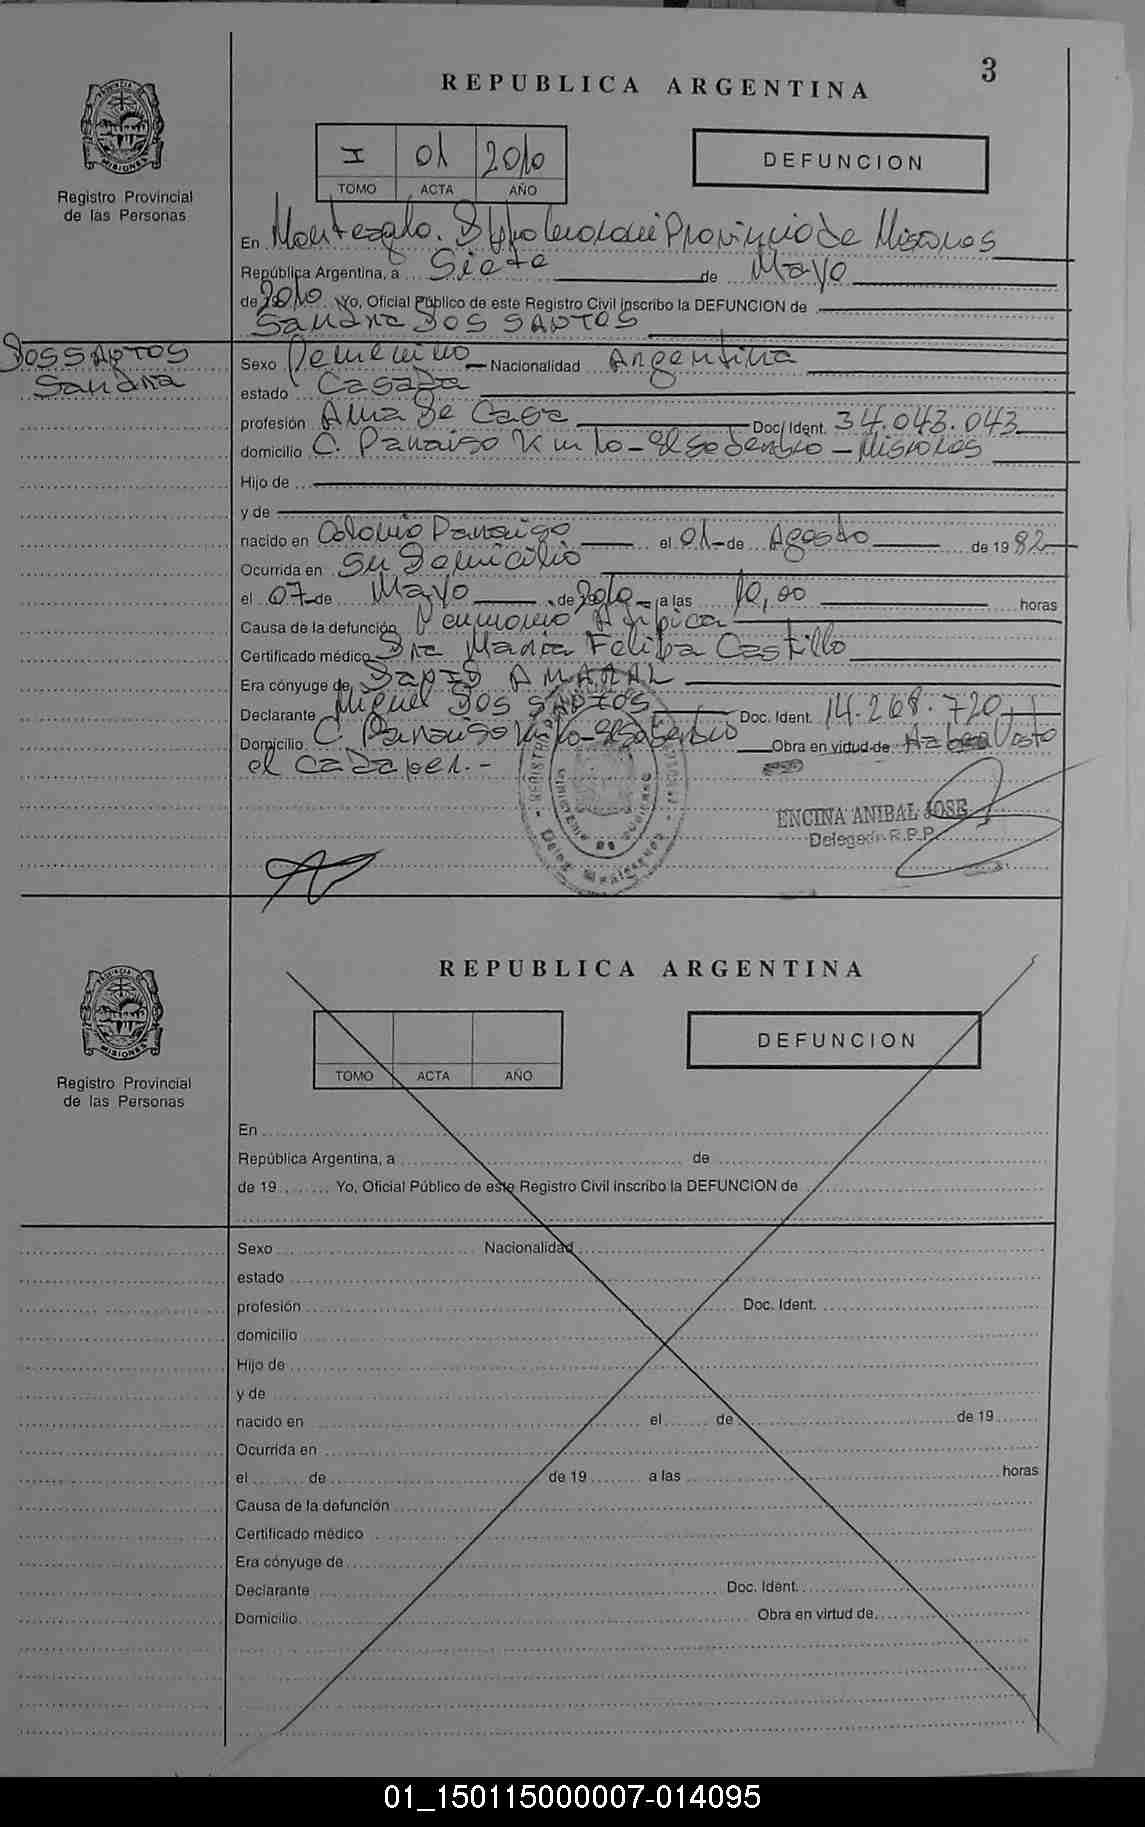 3
REPUBLICA ARGENTINA
I 01 2010
TOMO ACTA AÑO
DEFUNCION
PROVINCIA DE MISIONES
Registro Provincial
de las Personas
En Monteagudo. Provincia de Misiones
República Argentina, a Siete de Mayo
de 2010 Yo, Oficial Público de este Registro Civil inscribo la DEFUNCION de
Sandra DOS SANTOS
DOS SANTOS
Sandra
Sexo Femenino Nacionalidad Argentina
estado Casada
profesión Ama de Casa Doc. Ident. 34.043.043
domicilio C. Paraiso Km 10 - El Soberbio - Misiones
Hijo de
y de
nacido en Colonia Paraiso el 01 de Agosto de 1982
Ocurrida en Su Domicilio
el 07 de Mayo de 2010 a las 10,00 horas
Causa de la defunción Neumonia Atipica
Certificado médico Dra Maria Felipa Castillo
Era cónyuge de AMARAL
Declarante Miguel DOS SANTOS Doc. Ident. 14.268.720
Domicilio C. Paraiso Km 10 - El Soberbio Obra en virtud de Haber Visto
el cadaver.-
ENCINA ANIBAL JOSE
Delegado R.P.P.
REPUBLICA ARGENTINA
TOMO ACTA AÑO
DEFUNCION
PROVINCIA DE MISIONES
Registro Provincial
de las Personas
En
República Argentina, a de
de 19 Yo, Oficial Público de este Registro Civil inscribo la DEFUNCION de
Sexo Nacionalidad
estado
profesión Doc. Ident.
domicilio
Hijo de
y de
nacido en el de de 19
Ocurrida en
el de de 19 a las horas
Causa de la defunción
Certificado médico
Era cónyuge de
Declarante Doc. Ident.
Domicilio Obra en virtud de
01_150115000007-014095